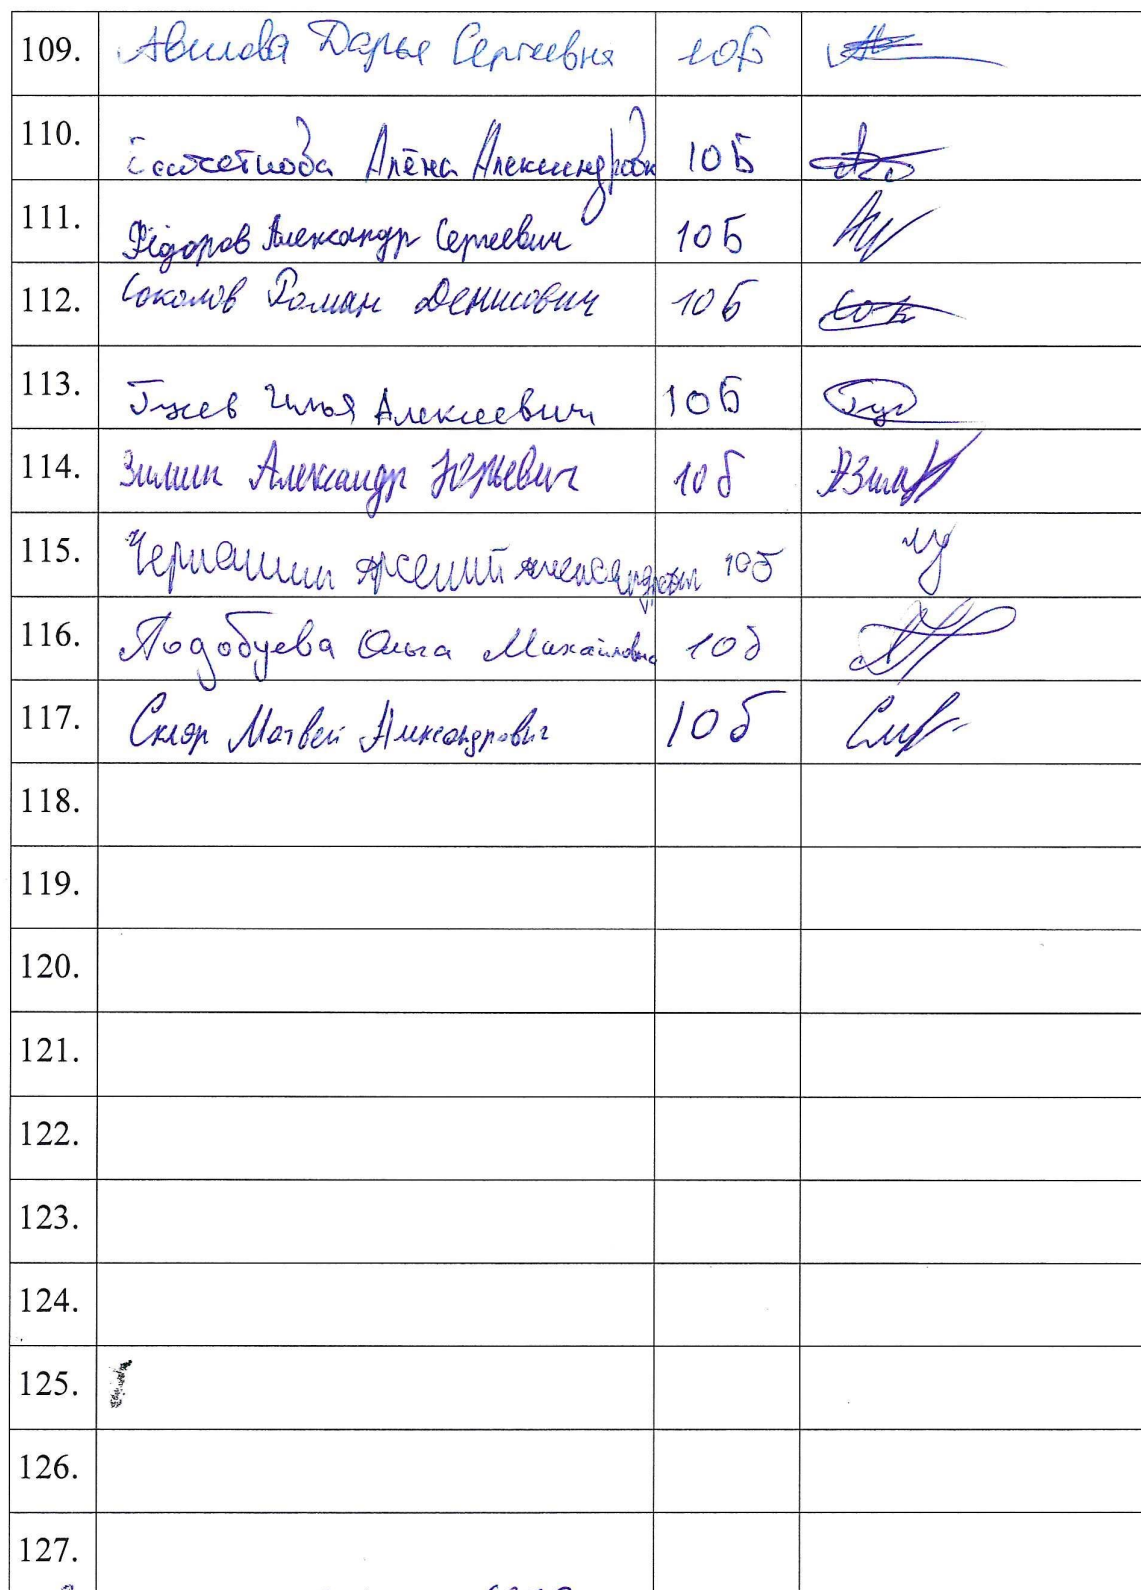 109. Авилова Дарья Сергеевна 10Б
110. Алёна Александровна 10Б
111. Фёдоров Александр Сергеевич 10Б
112. Соколов Роман Денисович 10Б
113. Гужев Илья Алексеевич 10Б
114. Зимин Александр Юрьевич 10б
115. Арсений Александрович 10б
116. Подобуева Ольга Михайловна 10б
117. Скляр Матвей Александрович 10б
118.
119.
120.
121.
122.
123.
124.
125.
126.
127.